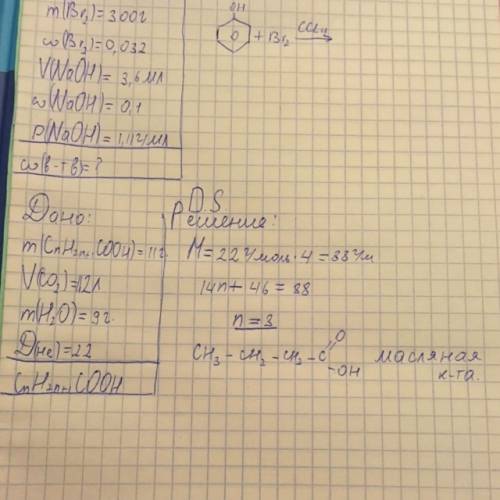 m(Br₂)=300г
ω(Br₂)=0,032
V(NaOH)=3,6мл
ω(NaOH)=0,1
ρ(NaOH)=1,11г/мл
ω(в-тв)=?
OH
+ Br₂ CCl₄
D.S.
Дано:
m(CnH2n+1COOH)=11г.
V(CO₂)=12л
m(H₂O)=9г.
D(He)=22
CnH2n+1COOH
Решение:
M=22г/моль·4=88г/м
14n+46=88
n=3
CH₃-CH₂-CH₂-C
O
-OH
масляная
к-та.